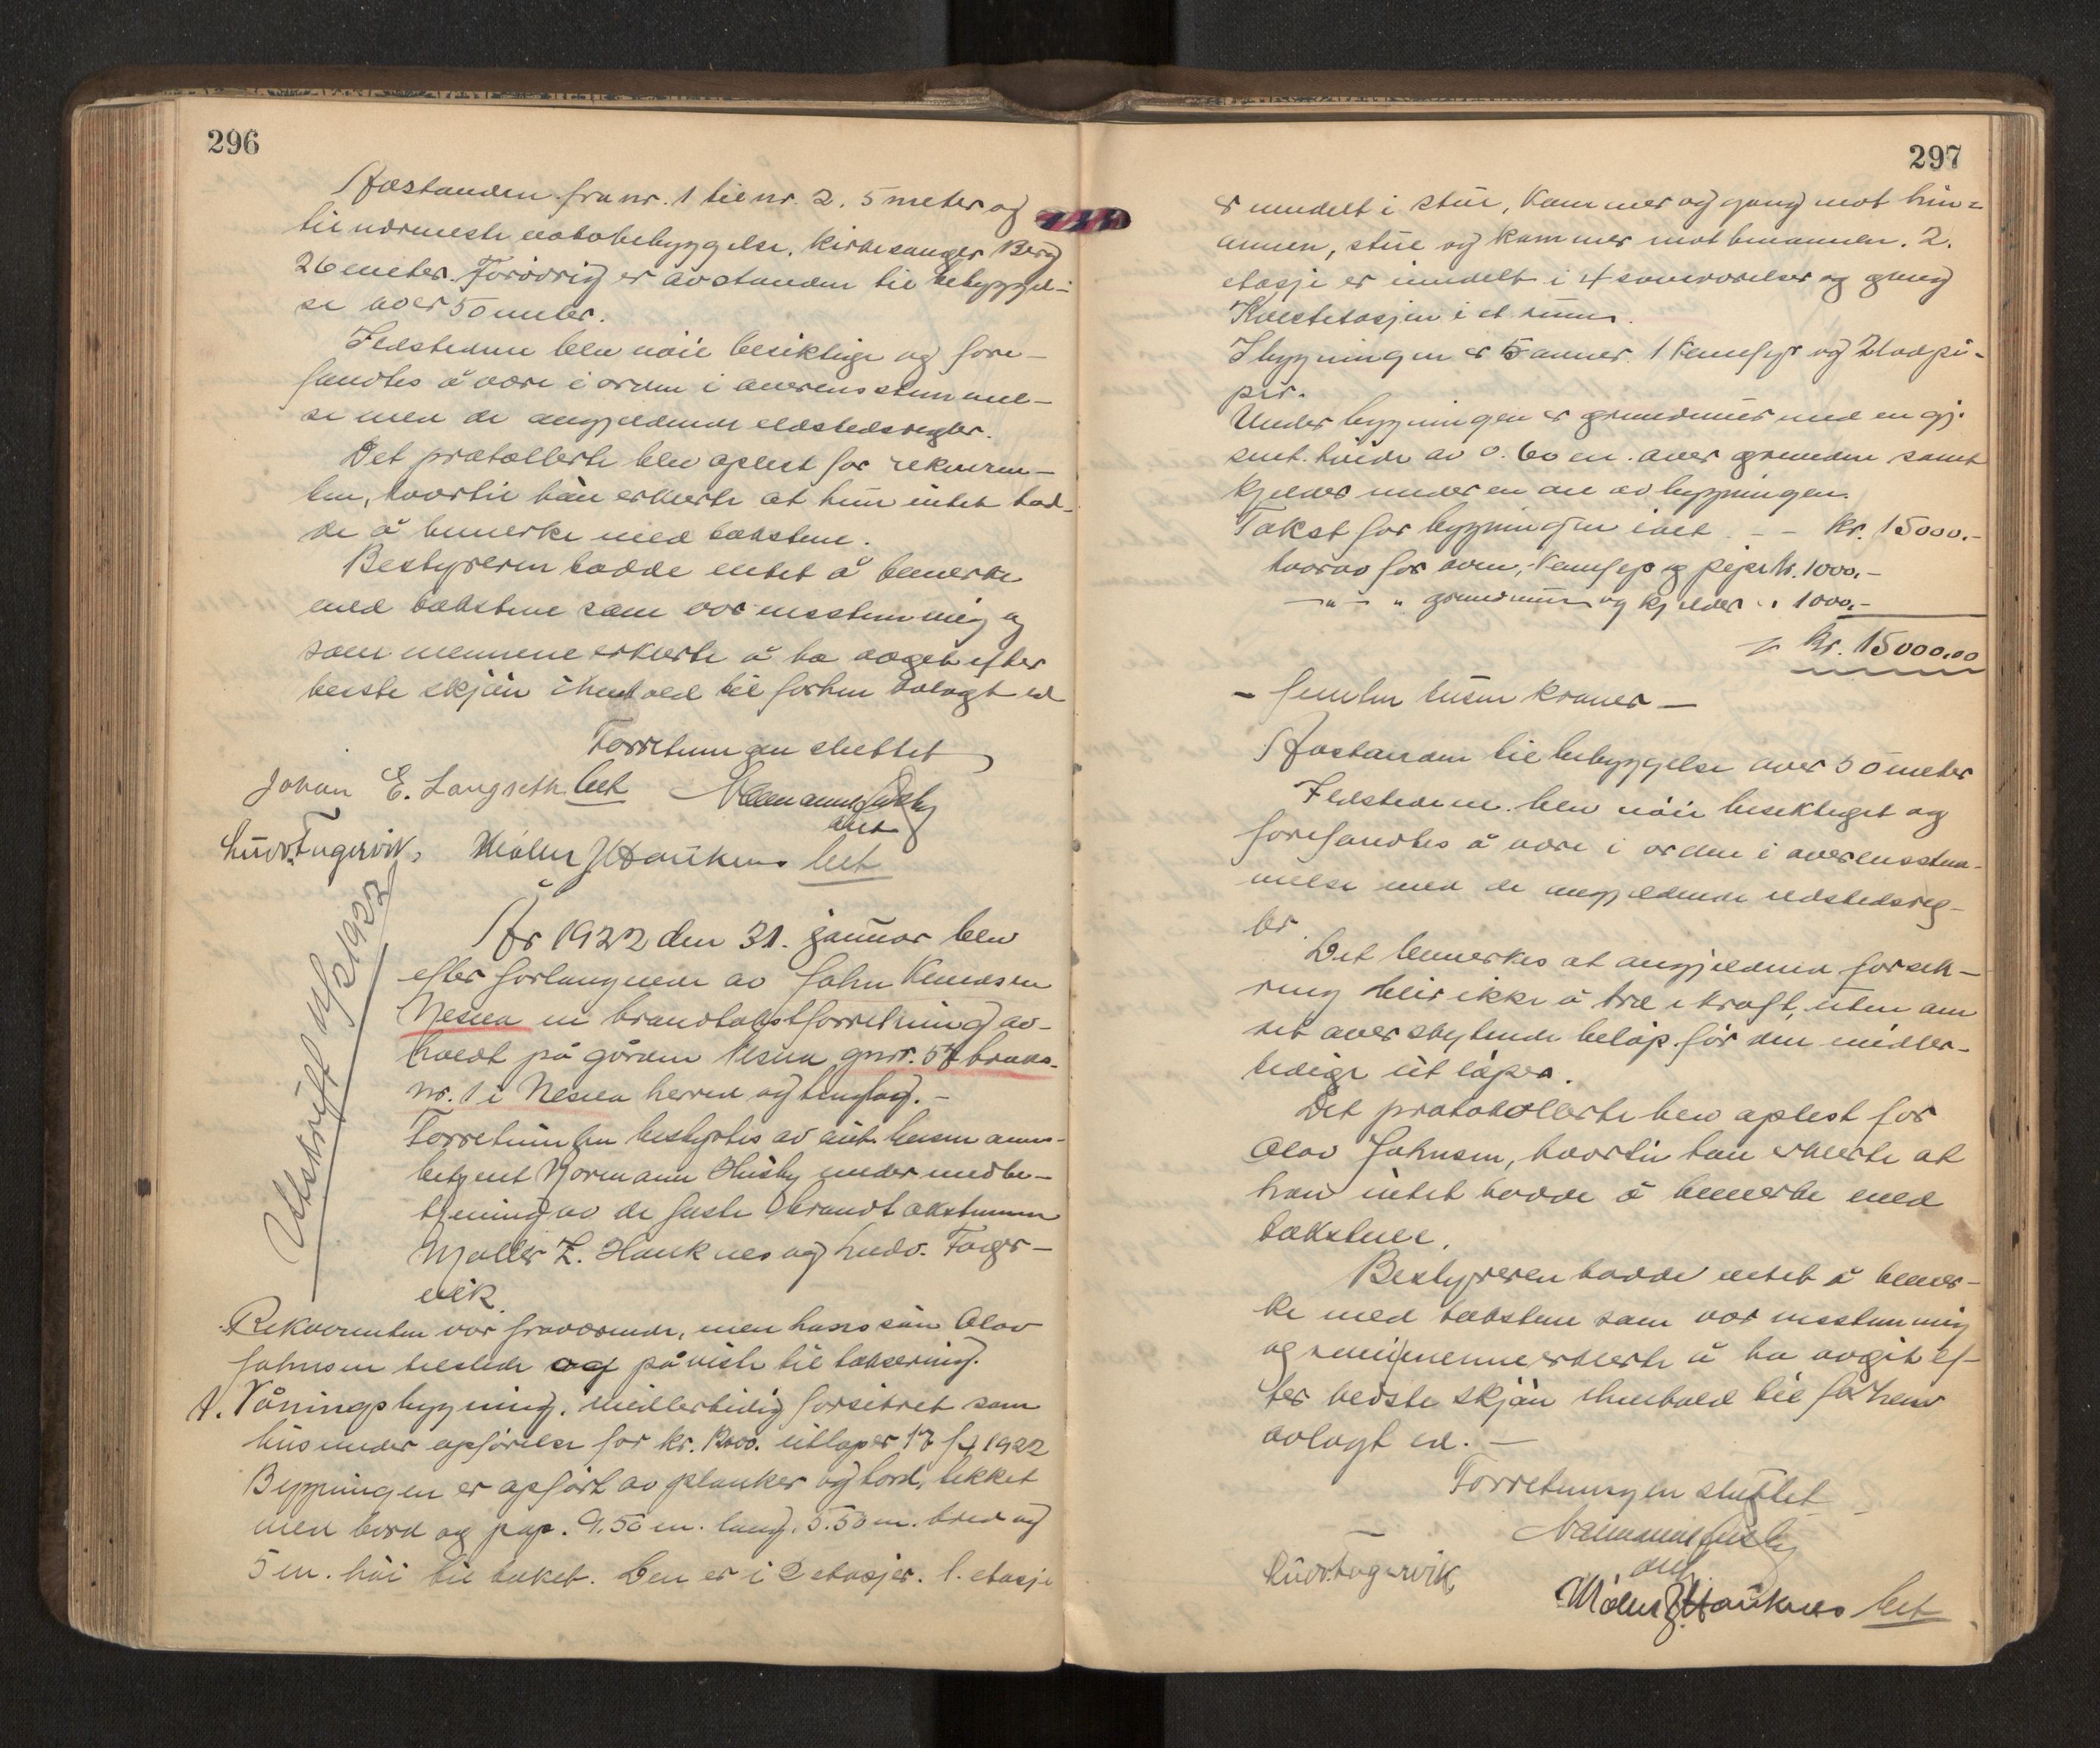 296
Avstanden fra nr. 1 til nr. 2. 5 meter og
til nærmeste nabobebyggelse, kirkesanger Berg
26 meter. Forøvrig er avstanden til bebyggel-
se over 50 meter.
Ildstedene blev nøie besiktige og fore-
fandtes å være i orden i overensstemmel-
se med de angjeldende ildstedsregler.
Det protokollerte blev oplest for rekviren-
ten, hvortil hun erklærte at hun intet had-
de å bemerke med taksten.
Bestyreren hadde intet å bemerke
med taksten som var enstemmig og
som mennene erklærte å ha avgit efter
beste skjøn i henhold til forhen avlagt ed
Forretningen sluttet
Johan E. Langseth. Normann Husby
Ludv. Fagervik, Møller Z Hauknes
Utskrift 1922
År 1922 den 31. januar blev
efter forlangende av John Knudsen
Nesna en brandtakstforretning av-
holdt på gården Nesna gnr. 57 bruks-
nr. 1 i Nesna herred og tinglag. -
Forretningen bestyrtes av lensmanns-
betjent Normann Husby under medbe-
tjening av de faste brandtakstmenn
Møller Z. Hauknes og Ludv. Fager-
vik.
Rekvirenten var fraværende, men hans søn Olav
Johnsen tilstede og påviste til taksering.
1. Våningsbygning. Midlertidig forsikret som
hus under opførelse for kr. utløper 1922
Bygningen er opført av planker og bord, tekket
med bord og pap. 9.50 m. lang, 5.50 m. bred og
5 m. høi til taket. Den er i 2 etasjer. 1. etasje
297
er inndelt i stue, kammer og gang mot hin-
annen, stue og kammer mot hinannen. 2.
etasje er inndelt i 4 soveværelser og gang
Kvistetasjen i et rum.
I bygningen er 5 ovner. 1 komfyr og 2 lodpi-
per.
Under bygningen er grundmur med en gj.
snit. høide av 0.60 m. over grunden samt
kjelder under en del av bygningen.
Takst for bygningen ialt - - kr. 15000.-
hvorav for ovner, komfyr og piper kr. 1000.-
-"- " grundmur og kjelder " 1000.-
kr. 15000.00
- femten tusen kroner -
Avstanden til bebyggelse over 50 meter
Ildstedene blev nøie besiktiget og
forefandtes å være i orden i overensstem-
melse med de angjeldende ildstedsreg-
ler.
Det bemerkes at angjeldende forsik-
ring blir ikke å træ i kraft, uten om
det overskytende beløp før den midler-
tidige utløper.
Det protokollerte blev oplest for
Olav Johnsen, hvortil han erklærte at
han intet hadde å bemerke med
taksten.
Bestyreren hadde intet å bemer-
ke med taksten som var enstemmig
og som mennene erklærte å ha avgit ef-
ter bedste skjøn i henhold til forhen
avlagt ed. -
Forretningen sluttet
Normann Husby
Ludv. Fagervik
Møller Z Hauknes